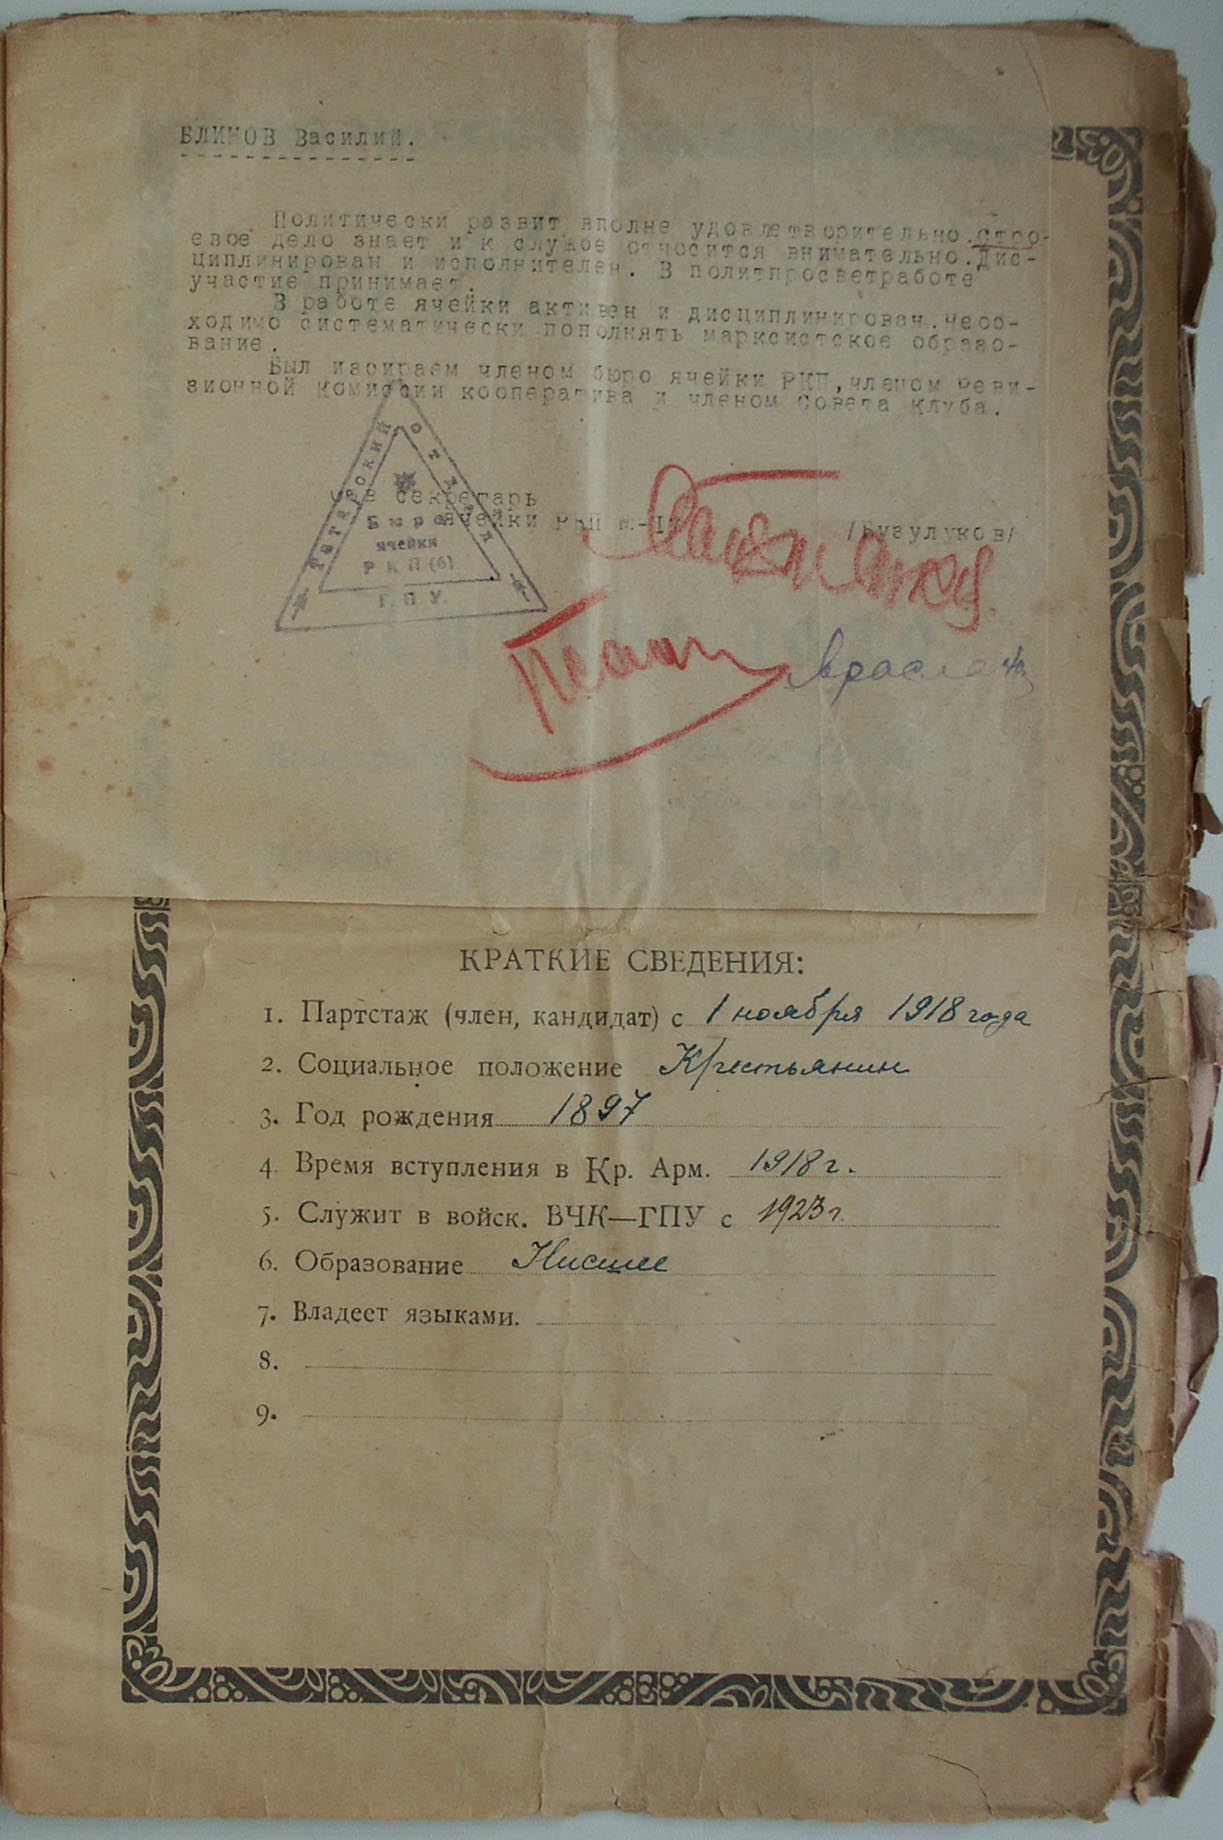 БЛИНОВ Василий.
Политически развит вполне удовлетворительно.Стро-
евое дело знает и к службе относится внимательно.Дис-
циплинирован и исполнителен. В политпросветработе
участие принимает.
В работе ячейки активен и дисциплинирован.Необ-
ходимо систематически пополнять марксистское образо-
вание.
Был избираем членом бюро ячейки РКП,членом Реви-
зионной Комиссии кооператива и членом Совета Клуба.
секретарь
ячейки РКП
/Бузулуков/
Татарский отдел
Бюро
ячейки
РКП(б)
Г.П.У.
КРАТКИЕ СВЕДЕНИЯ:
1. Партстаж (член, кандидат) с 1 ноября 1918 года
2. Социальное положение Крестьянин
3. Год рождения 1897
4. Время вступления в Кр. Арм. 1918 г.
5. Служит в войск. ВЧК—ГПУ с 1923 г.
6. Образование Нисшее
7. Владеет языками.
8.
9.